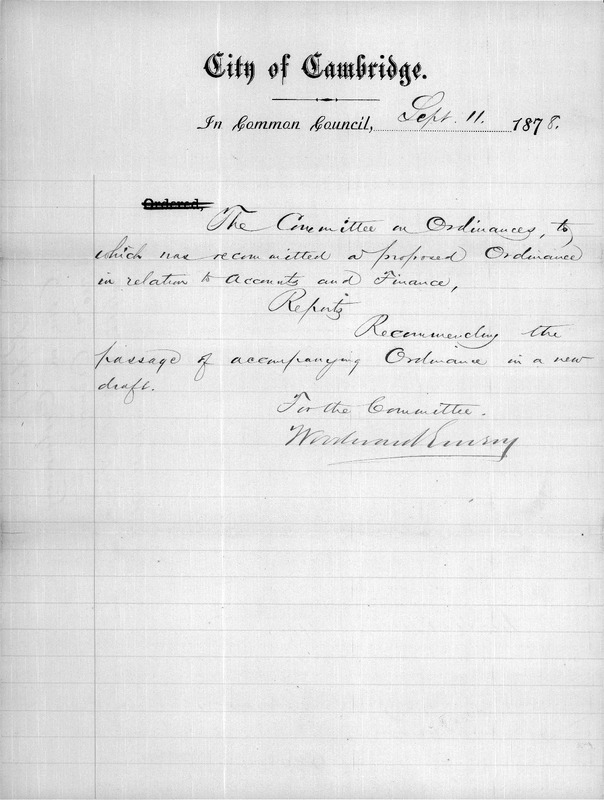 City of Cambridge.
In Common Council, Sept. 11. 1878.
Ordered,
The Committee on Ordinances, to
which was recommitted a proposed Ordinance
in relation to Accounts and Finance,
Reports
Recommending the
passage of accompanying Ordinance in a new
draft.
For the Committee.
Woodward Emery